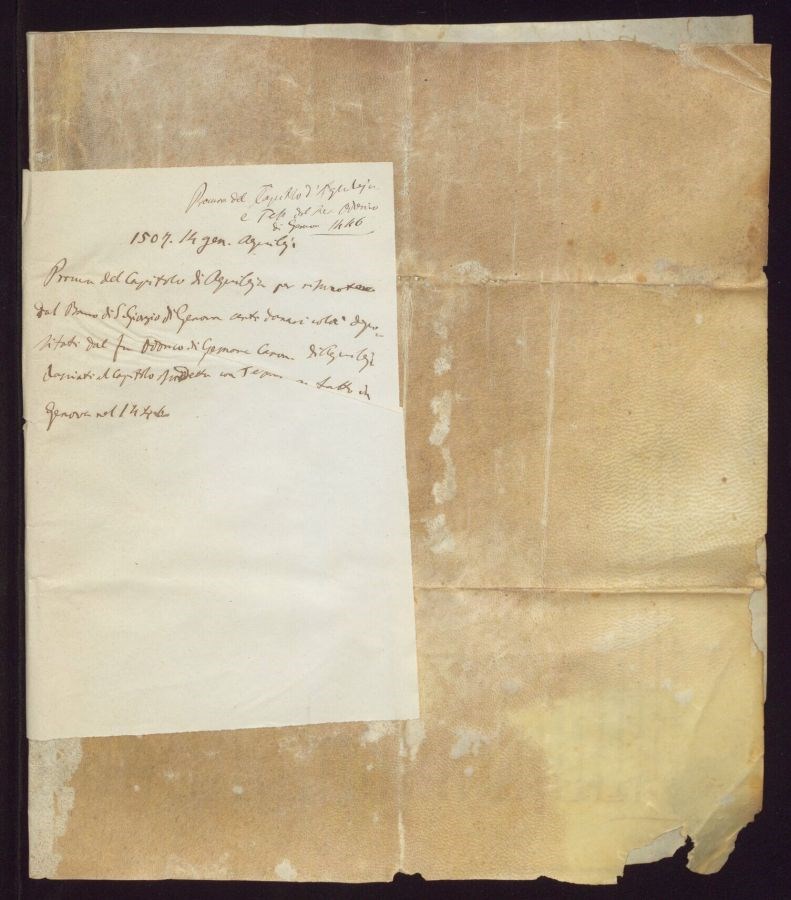 Procura del Capitolo d'Aquileja
e Test. del
di Gemona 1446
1507. 14 gen. Aquileja
Procura del Capitolo di Aquileja per
dal Banco di S. Giorgio di Genova certi danari colà depo-
sitati dal fu Odorico di Gemona Canon. di Aquileja
lasciati al Capitolo suddetto con fatto in
Genova nel 1446